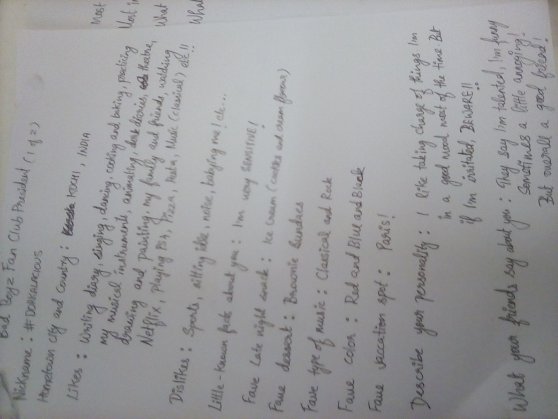 Bad Boyz Fan Club President (1 of 2)
Nickname : #
Hometown city and Country : KOCHI, INDIA
Likes : Writing diary, singing, dancing, cooking and baking, practicing
my musical instruments, animating, stories, theatre,
drawing and painting, my family and friends, watching
Netflix, Playing PS4, Pizza, Pasta, Music (classical) etc!!
Dislikes : Sports, sitting idle, noise, babying me! etc...
Little-known fact about you : I'm very SENSITIVE!
Fave Late night snack : Ice cream (cookie and cream flavour)
Fave dessert : Brownie Sundaes
Fave type of music : Classical and Rock
Fave color : Red and Blue and black
Fave vaccation spot : Paris!
Describe your personality : I like taking charge of things I'm
in a good mood most of the time But
if I'm irritated, BEWARE!!
What your friends say about you : They say I'm talented, I'm funny
Sometimes a little annoying!
But overall a good friend!
Most
Most
What
What